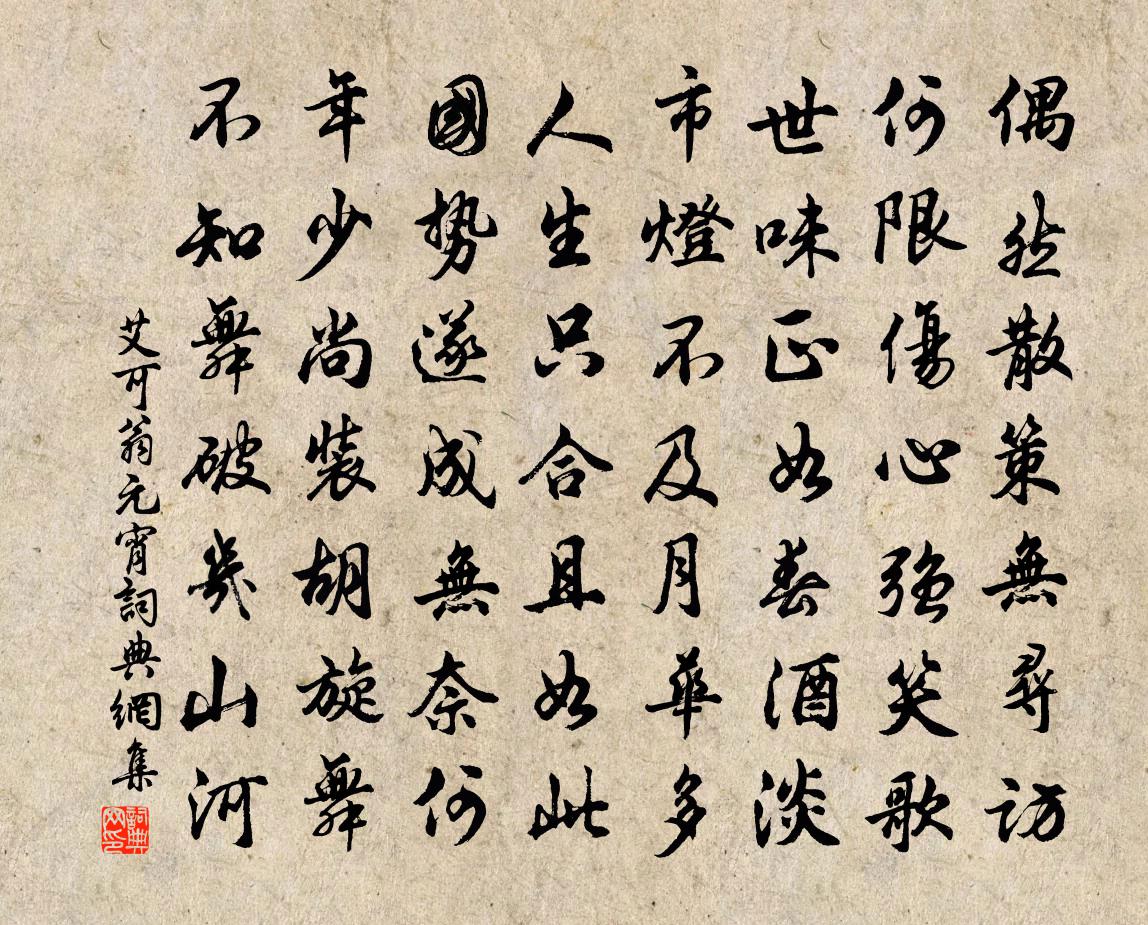 偶然散策無尋訪
何限傷心強笑歌
世味正如春酒淡
市燈不及月華多
人生只合且如此
國勢遂成無奈何
年少尚裝胡旋舞
不知舞破幾山河
艾可翁元宵詞典網集
詞典網印